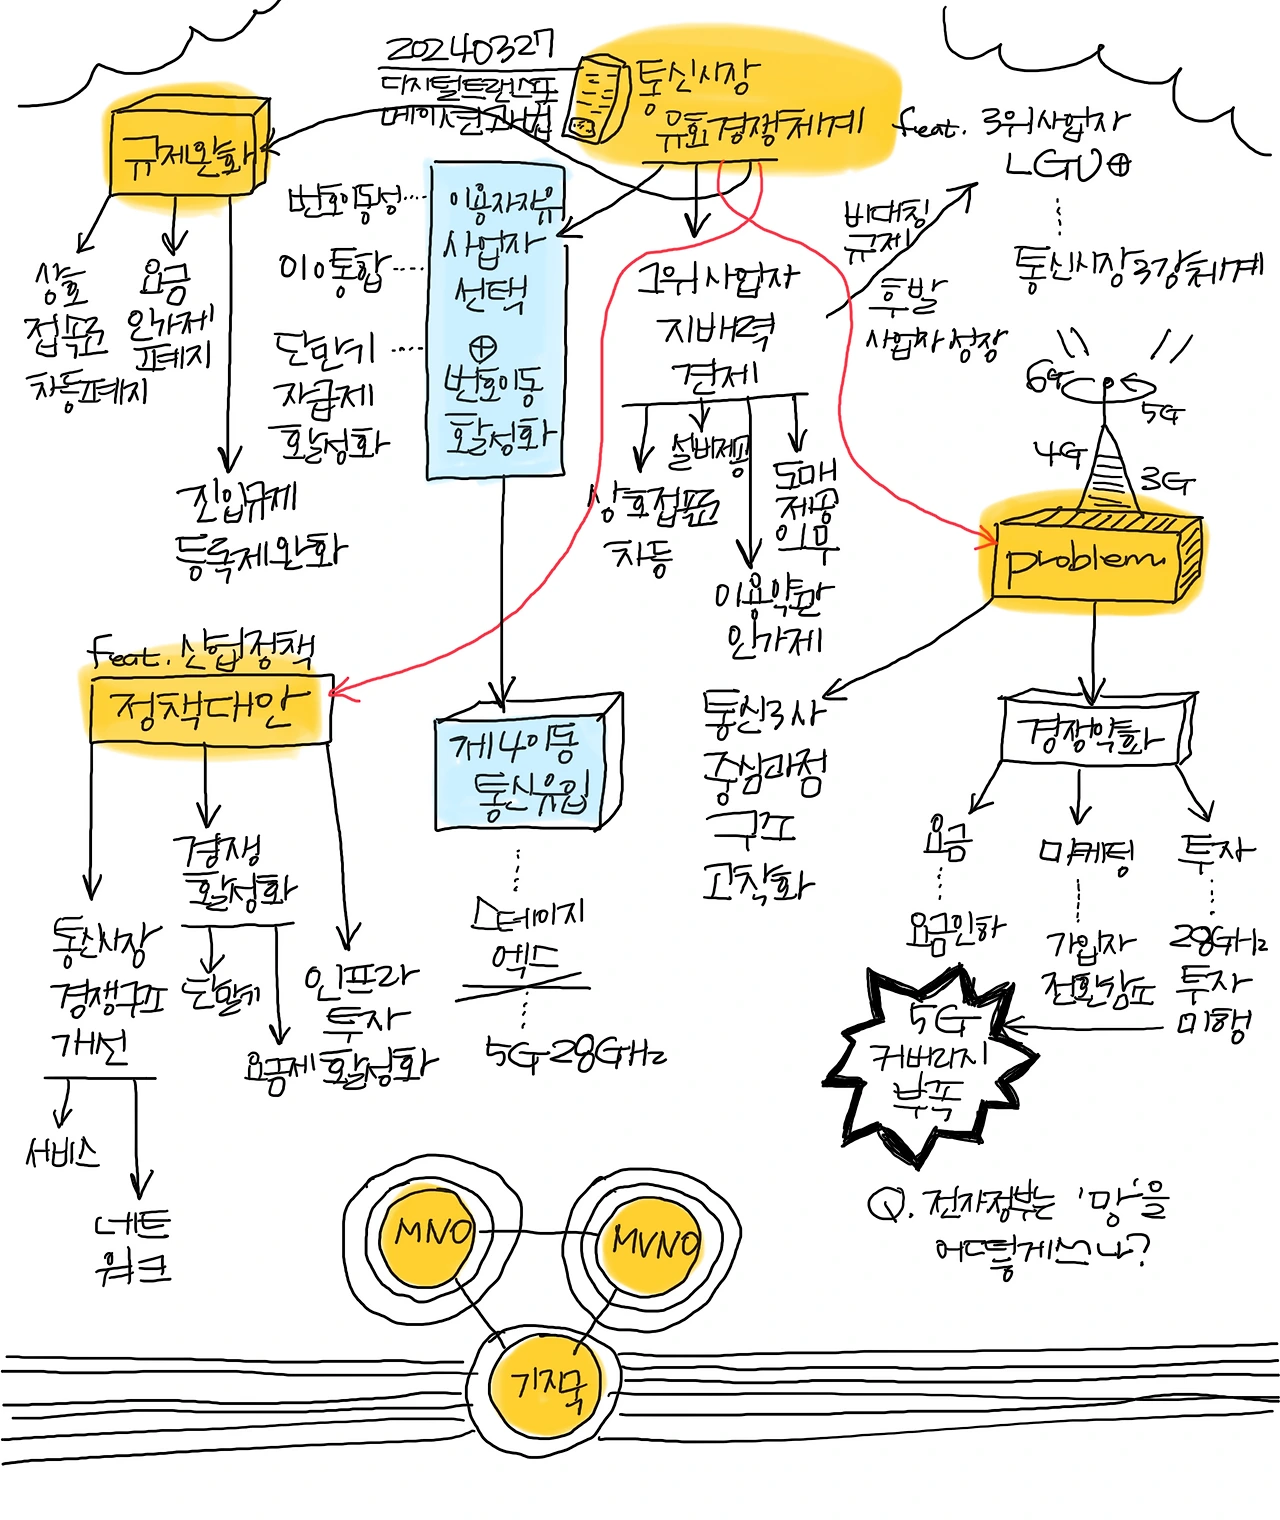 20240327
디지털트랜스포
메이션과 법
통신시장
유효경쟁체계
feat. 3위사업자
LGU⊕
통신시장 3강체계
규제완화
상호
접속료
차등폐지
요금
인가제
폐지
진입규제
등록제 완화
번호이동성
010통합
단말기
자급제
활성화
이용자자유
사업자
선택
⊕
번호이동
활성화
1위사업자
지배력
견제
비대칭
규제
후발
사업자 성장
상호접속료
차등
설비제공
이용약관
인가제
도매
제공
의무
6G
5G
4G
3G
problem
통신3사
중심과점
구조
고착화
경쟁약화
요금
요금인하
마케팅
가입자
전환감소
투자
28GHz
투자
미행
5G
커버리지
부족
feat. 산업정책
정책대안
통신시장
경쟁구조
개선
서비스
네트
워크
경쟁
활성화
단말기
요금제 활성화
인프라
투자
제4이동
통신유입
스테이지
엑스
5G 28GHz
Q. 전자정부는 '망'을
어떻게 쓰나?
MNO
MVNO
기지국